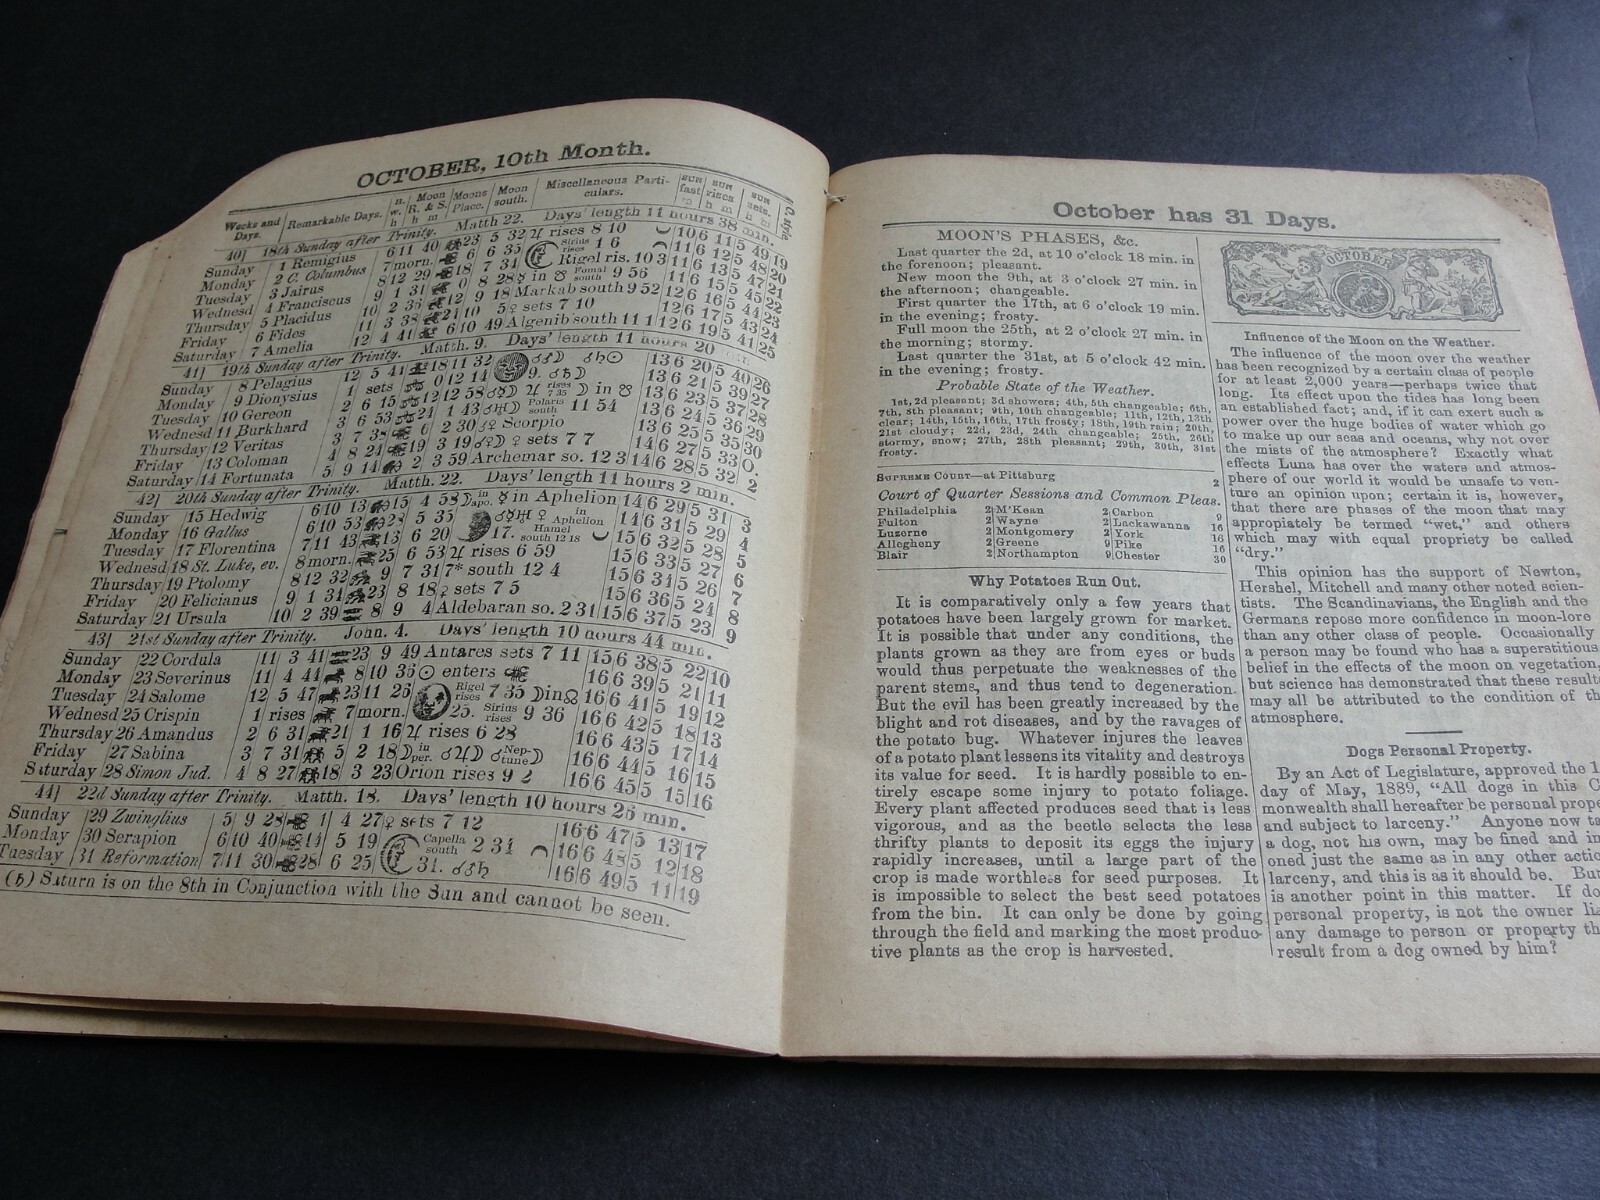 OCTOBER, 10th Month.
Weeks and Days. Remarkable Days. Moon R. & S. h m Moons Place. Moon south. Miscellaneous Particulars. sun fast sun rises h m sun sets.
40] 18th Sunday after Trinity. Matth 22. Days' length 11 hours 38 min.
Sunday 1 Remigius 6 11 40 23 5 32 ♃ rises 8 10
Monday 2 C. Columbus 7 morn. 6 6 35 Sirius rises 1 6
Tuesday 3 Jairus 8 12 29 18 7 31 Rigel ris. 10 3
Wednesd 4 Franciscus 9 1 31 0 8 28 ☿ in ☋ Fomal south 9 56
Thursday 5 Placidus 10 2 36 12 9 18 Markab south 9 52
Friday 6 Fides 11 3 38 ♀ sets 7 10
Saturday 7 Amelia 12 4 41 6 10 49 Algenib south 11 1
41] 19th Sunday after Trinity. Matth. 9. Days' length 11 hours 20
Sunday 8 Pelagius 12 5 41 18 11 32 ☌♂☽ ☌♄☉
Monday 9 Dionysius 1 sets 0 12 14 9. ☌♄☽
Tuesday 10 Gereon 2 6 15 12 12 58 ☌☿☽ ♃ rises 7 35 ☽ in ☋
Wednesd 11 Burkhard 3 6 53 24 1 43 ☌♅☽ Polaris south 11 54
Thursday 12 Veritas 3 7 38 6 2 30 ☌♀ Scorpio
Friday 13 Coloman 4 8 24 19 3 19 ☌♀☽ ♀ sets 7 7
Saturday 14 Fortunata 5 9 14 2 3 59 Archemar so. 12 3
42] 20th Sunday after Trinity. Matth. 22. Days' length 11 hours 2 min.
Sunday 15 Hedwig 6 10 13 15 4 58 ☽ in apo. ☿ in Aphelion 14 6 29 5 31 3
Monday 16 Gallus 6 10 53 28 5 35 ☌☿♅ ♀ in Aphelion 14 6 31 5 29 4
Tuesday 17 Florentina 7 11 43 13 6 20 17. Hamel south 12 18 15 6 32 5 28 5
Wednesd 18 St. Luke, ev. 8 morn. 25 6 53 ♃ rises 6 59 15 6 33 5 27 6
Thursday 19 Ptolomy 8 12 32 9 7 31 7* south 12 4 15 6 34 5 26 7
Friday 20 Felicianus 9 1 34 23 8 18 ♀ sets 7 5 15 6 36 5 24 8
Saturday 21 Ursula 10 2 39 8 9 4 Aldebaran so. 2 31 15 6 37 5 23 9
43] 21st Sunday after Trinity. John. 4. Days' length 10 hours 44 min.
Sunday 22 Cordula 11 3 41 23 9 49 Antares sets 7 11 15 6 38 5 22 10
Monday 23 Severinus 11 4 44 8 10 36 ☉ enters 16 6 39 5 21 11
Tuesday 24 Salome 12 5 47 23 11 25 Rigel rises 7 35 ☽ in ☊ 16 6 41 5 19 12
Wednesd 25 Crispin 1 rises 7 morn. 25. Sirius rises 9 36 16 6 42 5 18 13
Thursday 26 Amandus 2 6 31 21 1 16 ♃ rises 6 28 16 6 43 5 17 14
Friday 27 Sabina 3 7 31 5 2 18 ☽ in per. ☌♃☽ ☌ Neptune ☽ 16 6 44 5 16 15
Saturday 28 Simon Jud. 4 8 27 18 3 23 Orion rises 9 2 16 6 45 5 15 16
44] 22d Sunday after Trinity. Matth. 18. Days' length 10 hours 26 min.
Sunday 29 Zwinglius 5 9 28 1 4 27 ♀ sets 7 12 16 6 47 5 13 17
Monday 30 Serapion 6 10 40 14 5 19 Capella south 2 34 16 6 48 5 12 18
Tuesday 31 Reformation 7 11 30 28 6 25 31. ☌♂♄ 16 6 49 5 11 19
(♄) Saturn is on the 8th in Conjunction with the Sun and cannot be seen.
October has 31 Days.
MOON'S PHASES, &c.
Last quarter the 2d, at 10 o'clock 18 min. in
the forenoon; pleasant.
New moon the 9th, at 3 o'clock 27 min. in
the afternoon; changeable.
First quarter the 17th, at 6 o'clock 19 min.
in the evening; frosty.
Full moon the 25th, at 2 o'clock 27 min. in
the morning; stormy.
Last quarter the 31st, at 5 o'clock 42 min.
in the evening; frosty.
Probable State of the Weather.
1st, 2d pleasant; 3d showers; 4th, 5th changeable; 6th,
7th, 8th pleasant; 9th, 10th changeable; 11th, 12th, 13th
clear; 14th, 15th, 16th, 17th frosty; 18th, 19th rain; 20th,
21st cloudy; 22d, 23d, 24th changeable; 25th, 26th
stormy, snow; 27th, 28th pleasant; 29th, 30th, 31st
frosty.
SUPREME COURT—at Pittsburg 2
Court of Quarter Sessions and Common Pleas.
Philadelphia 2 M'Kean 2 Carbon 9
Fulton 2 Wayne 2 Lackawanna 16
Luzerne 2 Montgomery 2 York 16
Allegheny 2 Greene 9 Pike 16
Blair 2 Northampton 9 Chester 30
Why Potatoes Run Out.
It is comparatively only a few years that
potatoes have been largely grown for market.
It is possible that under any conditions, the
plants grown as they are from eyes or buds
would thus perpetuate the weaknesses of the
parent stems, and thus tend to degeneration.
But the evil has been greatly increased by the
blight and rot diseases, and by the ravages of
the potato bug. Whatever injures the leaves
of a potato plant lessens its vitality and destroys
its value for seed. It is hardly possible to en-
tirely escape some injury to potato foliage.
Every plant affected produces seed that is less
vigorous, and as the beetle selects the less
thrifty plants to deposit its eggs the injury
rapidly increases, until a large part of the
crop is made worthless for seed purposes. It
is impossible to select the best seed potatoes
from the bin. It can only be done by going
through the field and marking the most produc-
tive plants as the crop is harvested.
OCTOBER
Influence of the Moon on the Weather.
The influence of the moon over the weather
has been recognized by a certain class of people
for at least 2,000 years—perhaps twice that
long. Its effect upon the tides has long been
an established fact; and, if it can exert such a
power over the huge bodies of water which go
to make up our seas and oceans, why not over
the mists of the atmosphere? Exactly what
effects Luna has over the waters and atmos-
phere of our world it would be unsafe to ven-
ture an opinion upon; certain it is, however,
that there are phases of the moon that may
appropiately be termed "wet," and others
which may with equal propriety be called
"dry."
This opinion has the support of Newton,
Hershel, Mitchell and many other noted scien-
tists. The Scandinavians, the English and the
Germans repose more confidence in moon-lore
than any other class of people. Occasionally
a person may be found who has a superstitious
belief in the effects of the moon on vegetation,
but science has demonstrated that these result
may all be attributed to the condition of th
atmosphere.
Dogs Personal Property.
By an Act of Legislature, approved the 1
day of May, 1889, "All dogs in this C
monwealth shall hereafter be personal prope
and subject to larceny." Anyone now ta
a dog, not his own, may be fined and in
oned just the same as in any other actio
larceny, and this is as it should be. But
is another point in this matter. If do
personal property, is not the owner lia
any damage to person or property th
result from a dog owned by him?